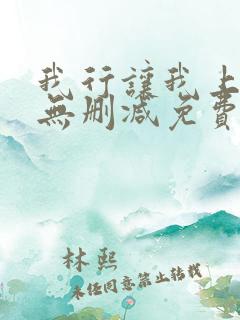 我行讓我上
無刪減免費
林熙
未经同意禁止转载